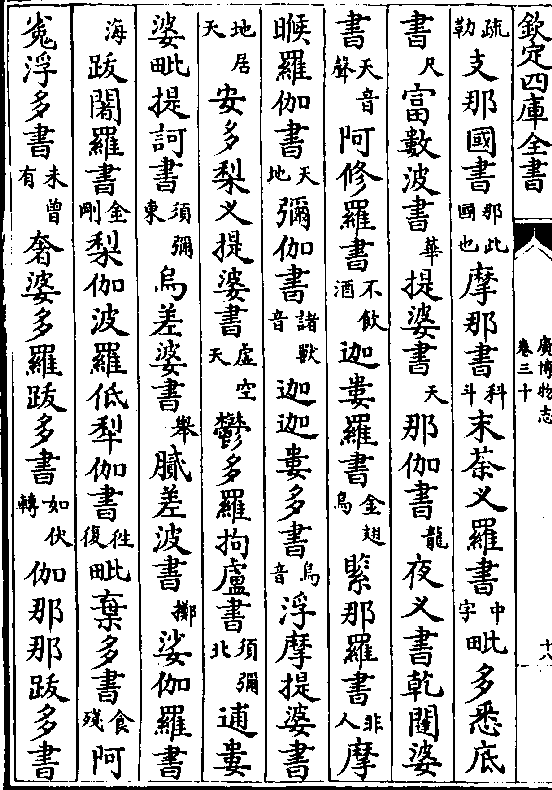 欽定四庫全書
廣博物志
卷三十
十八
疏勒支那國書那此國也摩那書科斗末荼义羅書中字毗多悉底
書尺富數波書華提婆書天那伽書龍夜义書乾闥婆
書天音聲阿修羅書不飲酒迦婁羅書金翅鳥緊那羅書非人摩
睺羅伽書天地彌伽書諸獸音迦迦婁多書烏音浮摩提婆書
地居天安多梨义提婆書虛空天鬱多羅拘盧書須彌北逋婁
婆毗提訶書須彌東烏差婆書舉膩差波書擲娑伽羅書
海跋闍羅書金剛梨伽波羅低犁伽書往復毗棄多書食殘阿
㝹浮多書未曾有奢婆多羅跋多書如伏轉伽那那跋多書